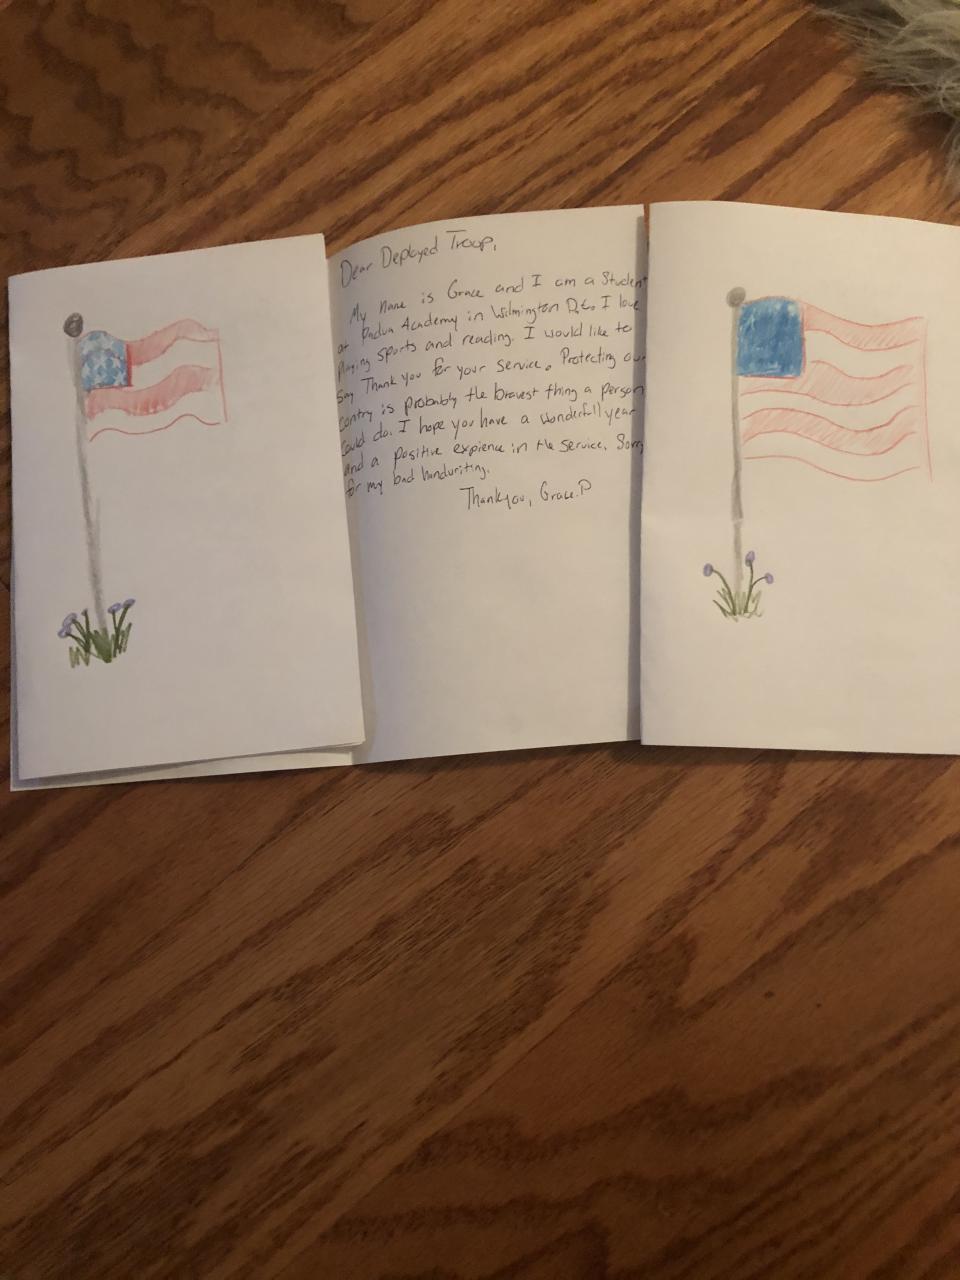 Dear Deployed Troop,
My name is Grace and I am a Student
at Padua Academy in Wilmington DE. I love
playing sports and reading. I would like to
say Thank you for your service. Protecting our
contry is probably the bravest thing a person
could do. I hope you have a wonderfull year
and a positive expience in the service. Sorry
for my bad handwriting.
Thankyou, Grace.P